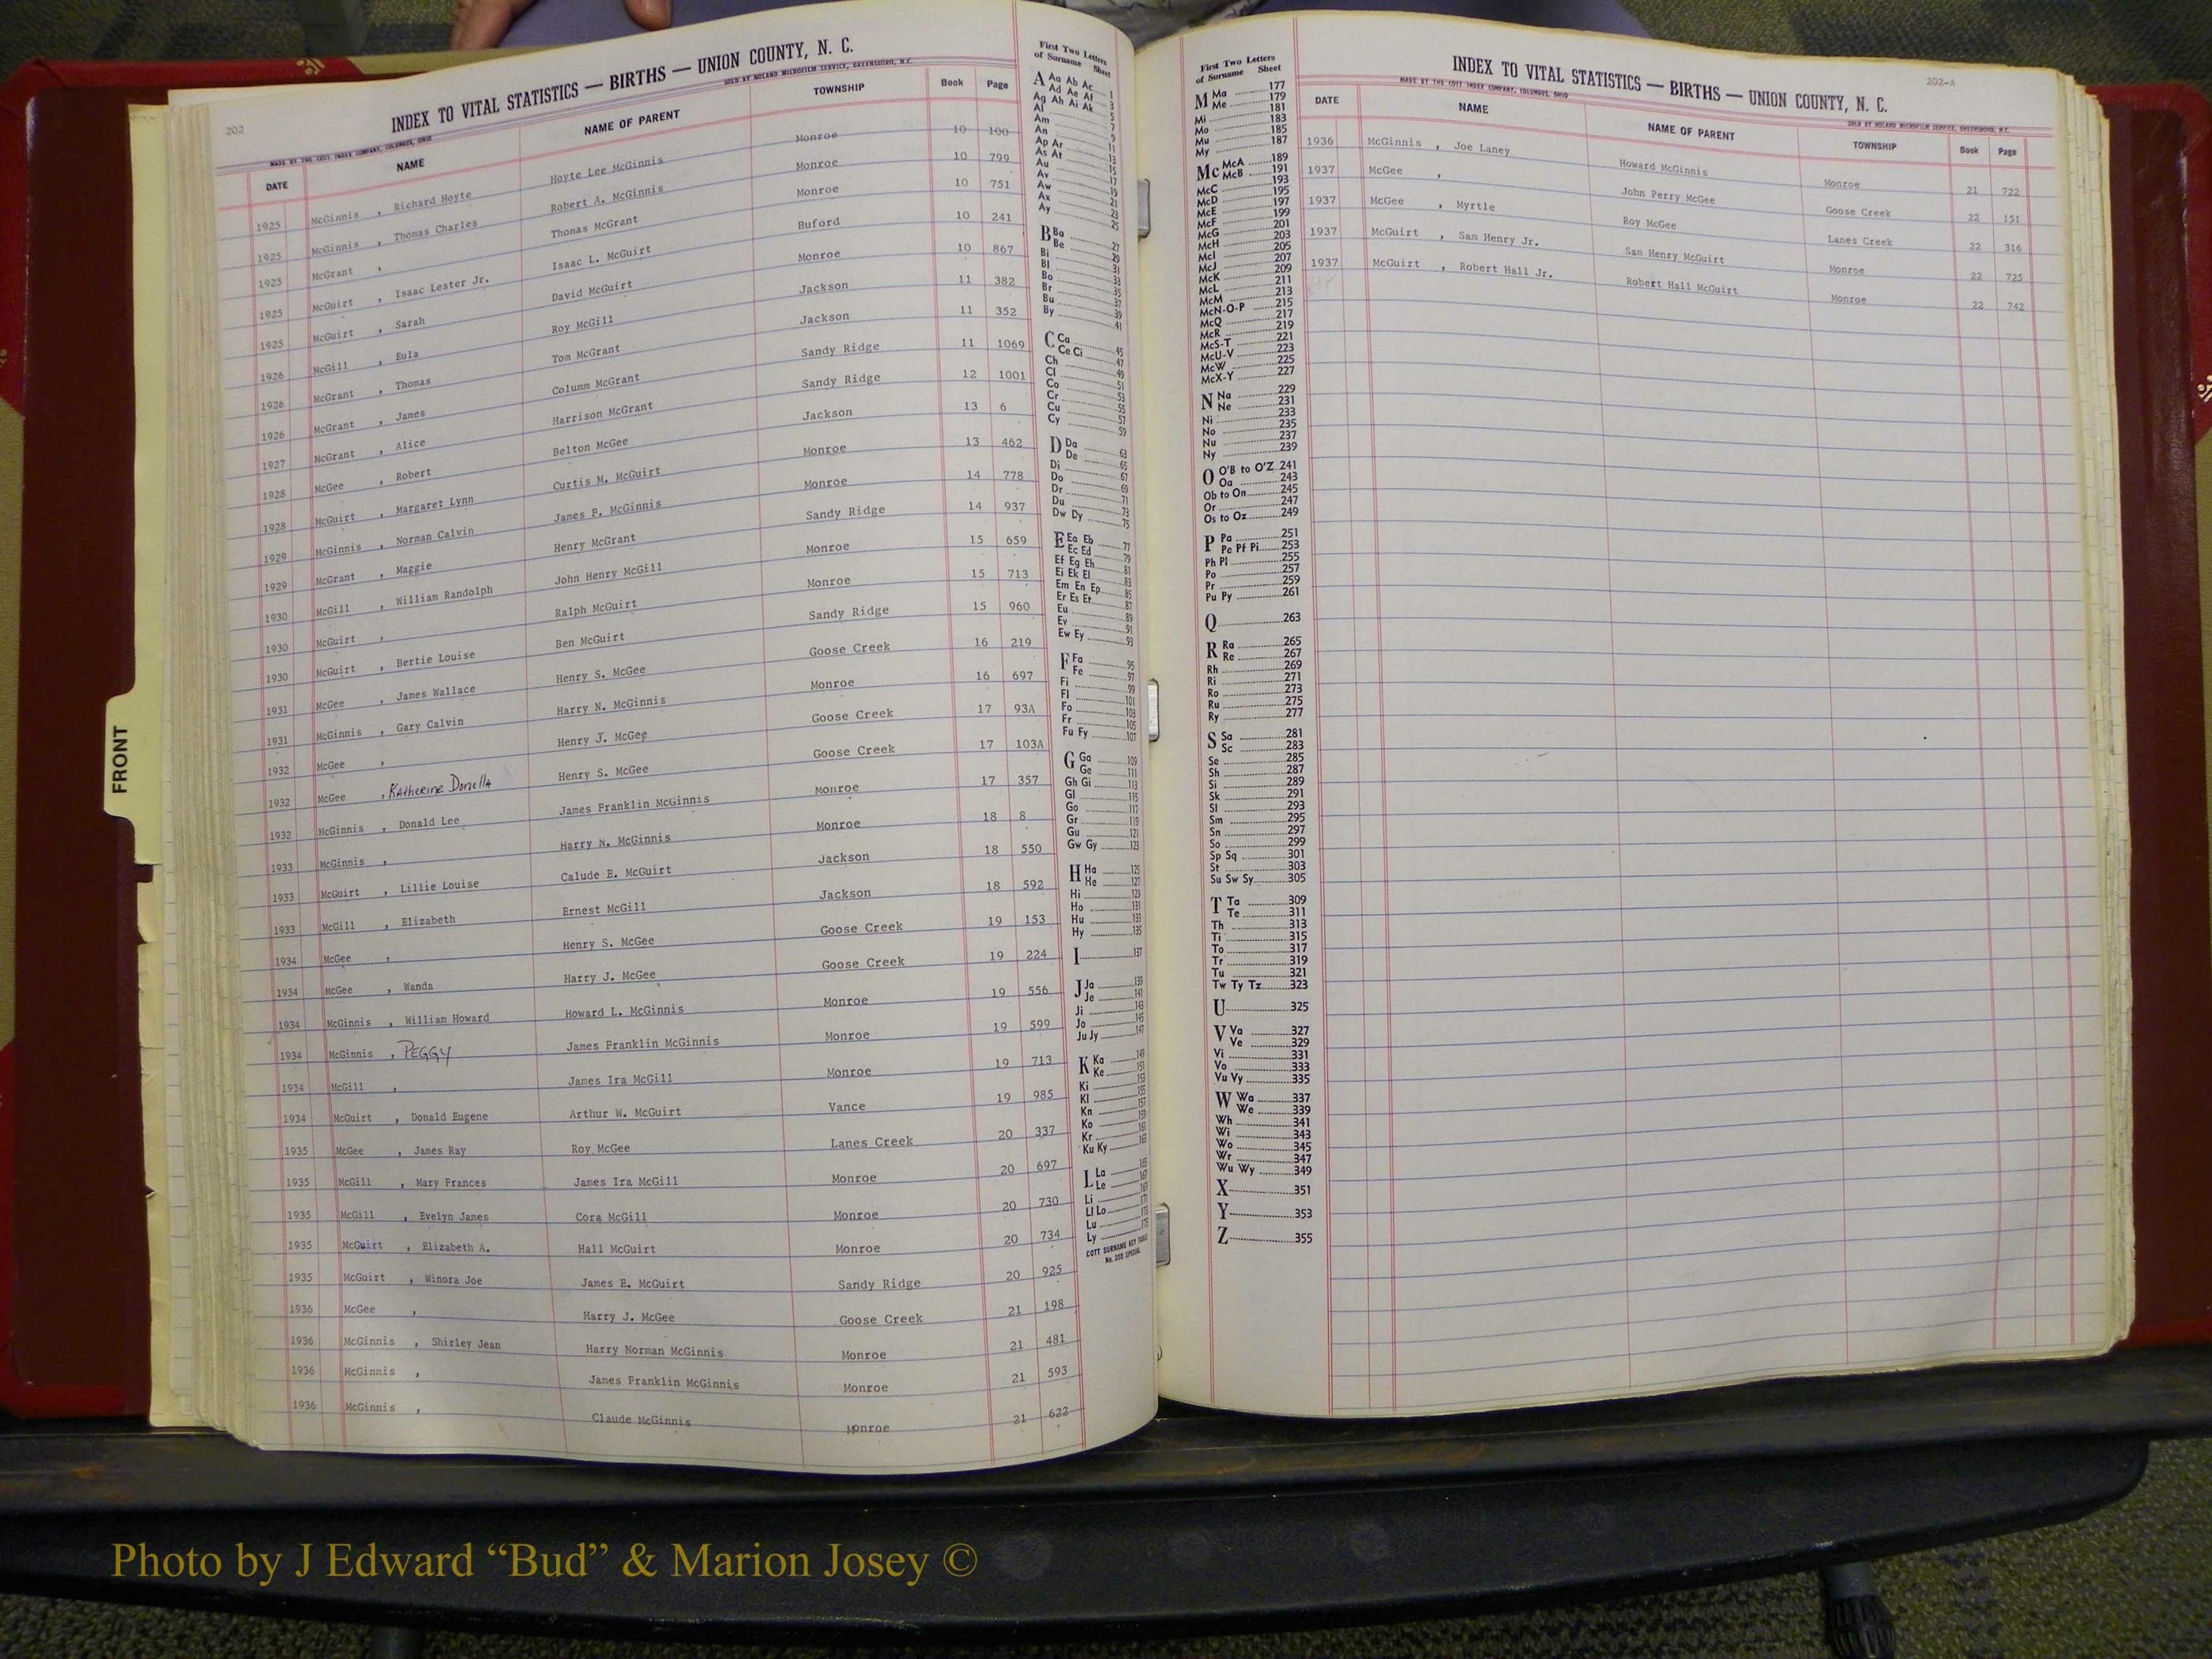 202
INDEX TO VITAL STATISTICS — BIRTHS — UNION COUNTY, N. C.
MADE BY THE COTT INDEX COMPANY, COLUMBUS, OHIO SOLD BY NOLAND MICROFILM SERVICE, GREENSBORO, N.C.
DATE NAME NAME OF PARENT TOWNSHIP Book Page
1925 McGinnis , Richard Hoyte Hoyte Lee McGinnis Monroe 10 100
1925 McGinnis , Thomas Charles Robert A. McGinnis Monroe 10 799
1925 McGrant , Thomas McGrant Monroe 10 751
1925 McGuirt , Isaac Lester Jr. Isaac L. McGuirt Buford 10 241
1925 McGuirt , Sarah David McGuirt Monroe 10 867
1926 McGill , Eula Roy McGill Jackson 11 382
1926 McGrant , Thomas Tom McGrant Jackson 11 352
1926 McGrant , James Columm McGrant Sandy Ridge 11 1069
1927 McGrant , Alice Harrison McGrant Sandy Ridge 12 1001
1928 McGee , Robert Belton McGee Jackson 13 6
1928 McGuirt , Margaret Lynn Curtis M. McGuirt Monroe 13 462
1929 McGinnis , Norman Calvin James F. McGinnis Monroe 14 778
1929 McGrant , Maggie Henry McGrant Sandy Ridge 14 937
1930 McGill , William Randolph John Henry McGill Monroe 15 659
1930 McGuirt , Ralph McGuirt Monroe 15 713
1930 McGuirt , Bertie Louise Ben McGuirt Sandy Ridge 15 960
1931 McGee , James Wallace Henry S. McGee Goose Creek 16 219
1931 McGinnis , Gary Calvin Harry N. McGinnis Monroe 16 697
1932 McGee , Henry J. McGee Goose Creek 17 93A
1932 McGee , Katherine Donella Henry S. McGee Goose Creek 17 103A
1932 McGinnis , Donald Lee James Franklin McGinnis Monroe 17 357
1933 McGinnis , Harry N. McGinnis Monroe 18 8
1933 McGuirt , Lillie Louise Calude E. McGuirt Jackson 18 550
1933 McGill , Elizabeth Ernest McGill Jackson 18 592
1934 McGee , Henry S. McGee Goose Creek 19 153
1934 McGee , Wanda Harry J. McGee Goose Creek 19 224
1934 McGinnis , William Howard Howard L. McGinnis Monroe 19 556
1934 McGinnis , PEGGY James Franklin McGinnis Monroe 19 599
1934 McGill , James Ira McGill Monroe 19 713
1934 McGuirt , Donald Eugene Arthur W. McGuirt Vance 19 985
1935 McGee , James Ray Roy McGee Lanes Creek 20 337
1935 McGill , Mary Frances James Ira McGill Monroe 20 697
1935 McGill , Evelyn James Cora McGill Monroe 20 730
1935 McGuirt , Elizabeth A. Hall McGuirt Monroe 20 734
1935 McGuirt , Winora Joe James E. McGuirt Sandy Ridge 20 925
1936 McGee , Harry J. McGee Goose Creek 21 198
1936 McGinnis , Shirley Jean Harry Norman McGinnis Monroe 21 481
1936 McGinnis , James Franklin McGinnis Monroe 21 593
1936 McGinnis , Claude McGinnis Monroe 21 622
First Two Letters
of Surname Sheet
A Aa Ab Ac 1
Ad Ae Af 3
Ag Ah Ai Ak 5
Al 7
Am 9
An 11
Ap Ar 13
As At 15
Au 17
Av 19
Aw 21
Ax 23
Ay 25
B Ba 27
Be 29
Bi 31
Bl 33
Bo 35
Br 37
Bu 39
By 41
C Ca 45
Ce Ci 47
Ch 49
Cl 51
Co 53
Cr 55
Cu 57
Cy 59
D Da 63
De 65
Di 67
Do 69
Dr 71
Du 73
Dw Dy 75
E Ea Eb 77
Ec Ed 79
Ef Eg Eh 81
Ei Ek El 83
Em En Ep 85
Er Es Et 87
Eu 89
Ev 91
Ew Ey 93
F Fa 95
Fe 97
Fi 99
Fl 101
Fo 103
Fr 105
Fu Fy 107
G Ga 109
Ge 111
Gh Gi 113
Gl 115
Go 117
Gr 119
Gu 121
Gw Gy 123
H Ha 125
He 127
Hi 129
Ho 131
Hu 133
Hy 135
I 137
J Ja 139
Je 141
Ji 143
Jo 145
Ju Jy 147
K Ka 149
Ke 151
Ki 153
Kl 155
Kn 157
Ko 159
Kr 161
Ku Ky 163
L La 165
Le 167
Li 169
Ll Lo 171
Lu 173
Ly 175
COTT SURNAME KEY TABLE
No. 355 SPECIAL
First Two Letters
of Surname Sheet
M Ma 177
Me 179
Mi 181
Mo 183
Mu 185
My 187
Mc McA 189
McB 191
McC 193
McD 195
McE 197
McF 199
McG 201
McH 203
McI 205
McJ 207
McK 209
McL 211
McM 213
McN-O-P 215
McQ 217
McR 219
McS-T 221
McU-V 223
McW 225
McX-Y 227
N Na 229
Ne 231
Ni 233
No 235
Nu 237
Ny 239
O O'B to O'Z 241
Oa 243
Ob to On 245
Or 247
Os to Oz 249
P Pa 251
Pe Pf Pi 253
Ph Pl 255
Po 257
Pr 259
Pu Py 261
Q 263
R Ra 265
Re 267
Rh 269
Ri 271
Ro 273
Ru 275
Ry 277
S Sa 281
Sc 283
Se 285
Sh 287
Si 289
Sk 291
Sl 293
Sm 295
Sn 297
So 299
Sp Sq 301
St 303
Su Sw Sy 305
T Ta 309
Te 311
Th 313
Ti 315
To 317
Tr 319
Tu 321
Tw Ty Tz 323
U 325
V Va 327
Ve 329
Vi 331
Vo 333
Vu Vy 335
W Wa 337
We 339
Wh 341
Wi 343
Wo 345
Wr 347
Wu Wy 349
X 351
Y 353
Z 355
202-A
INDEX TO VITAL STATISTICS — BIRTHS — UNION COUNTY, N. C.
MADE BY THE COTT INDEX COMPANY, COLUMBUS, OHIO SOLD BY NOLAND MICROFILM SERVICE, GREENSBORO, N.C.
DATE NAME NAME OF PARENT TOWNSHIP Book Page
1936 McGinnis , Joe Laney Howard McGinnis Monroe 21 722
1937 McGee , John Perry McGee Goose Creek 22 151
1937 McGee , Myrtle Roy McGee Lanes Creek 22 316
1937 McGuirt , Sam Henry Jr. Sam Henry McGuirt Monroe 22 725
1937 McGuirt , Robert Hall Jr. Robert Hall McGuirt Monroe 22 742
FRONT
Photo by J Edward “Bud” & Marion Josey ©